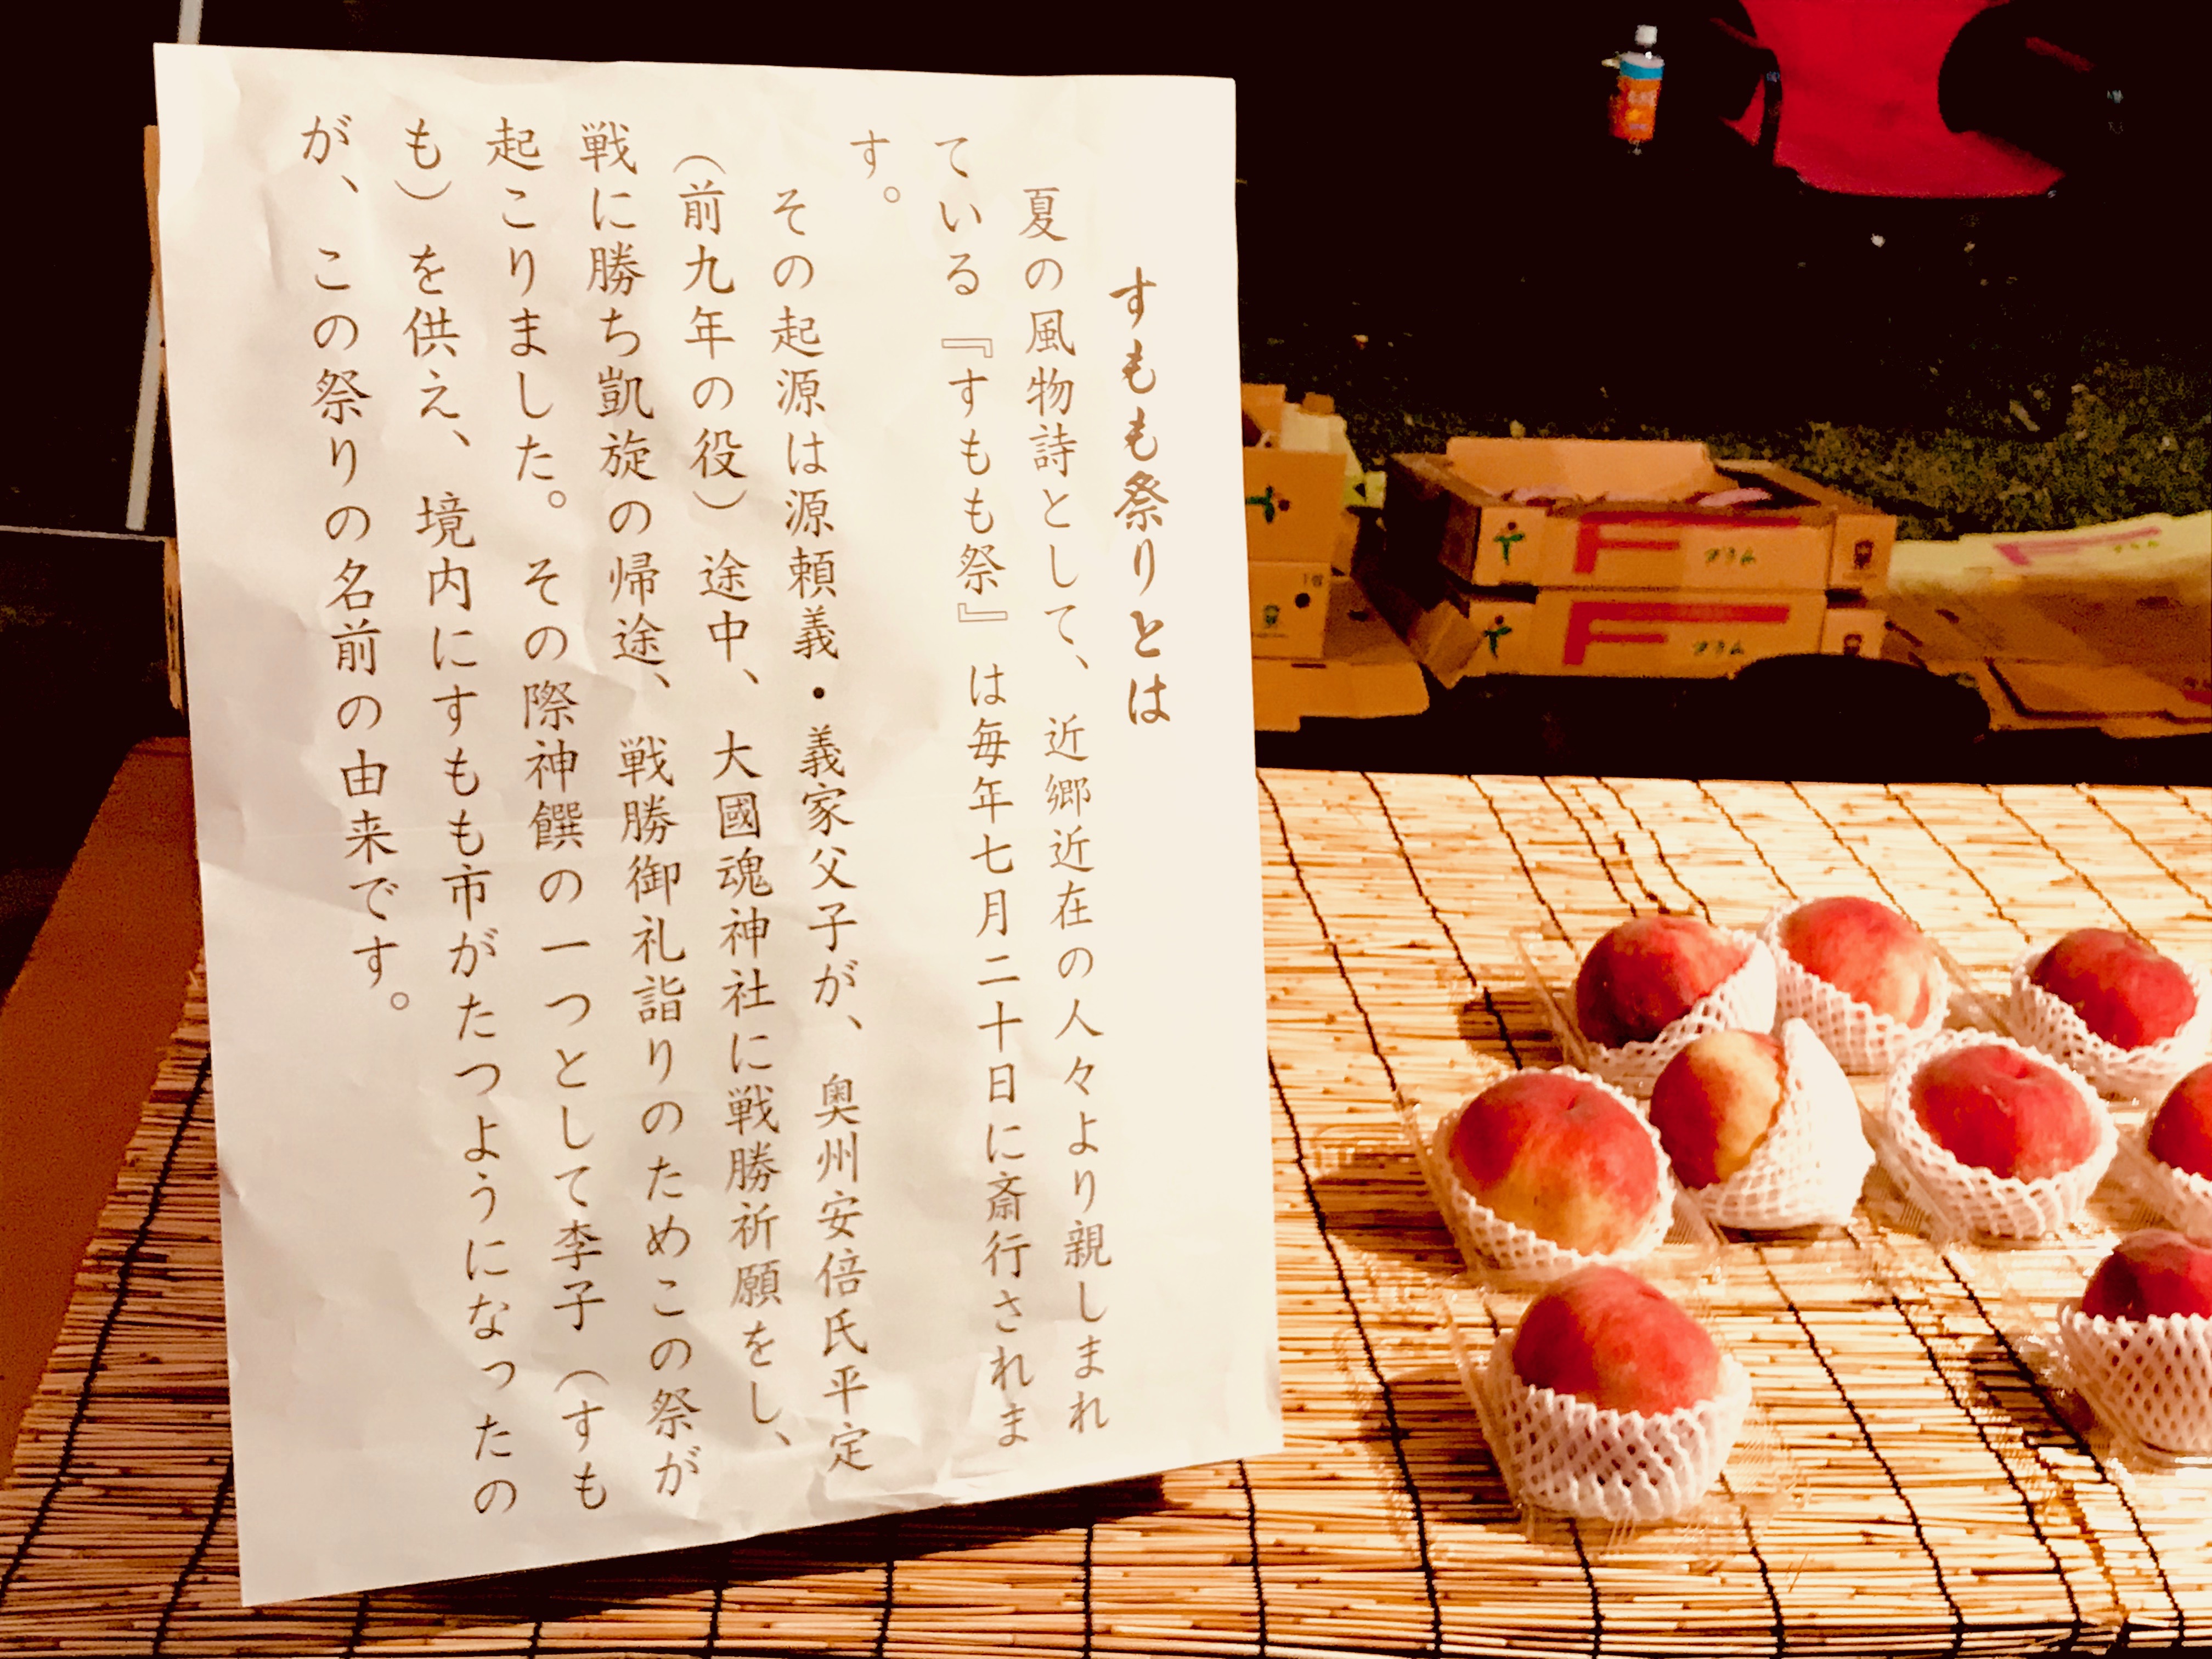 すもも祭りとは
夏の風物詩として、近郷近在の人々より親しまれ
ている『すもも祭』は毎年七月二十日に斎行されま
す。
その起源は源頼義・義家父子が、奥州安倍氏平定
（前九年の役）途中、大國魂神社に戦勝祈願をし、
戦に勝ち凱旋の帰途、戦勝御礼詣りのためこの祭が
起こりました。その際神饌の一つとして李子（すも
も）を供え、境内にすもも市がたつようになったの
が、この祭りの名前の由来です。